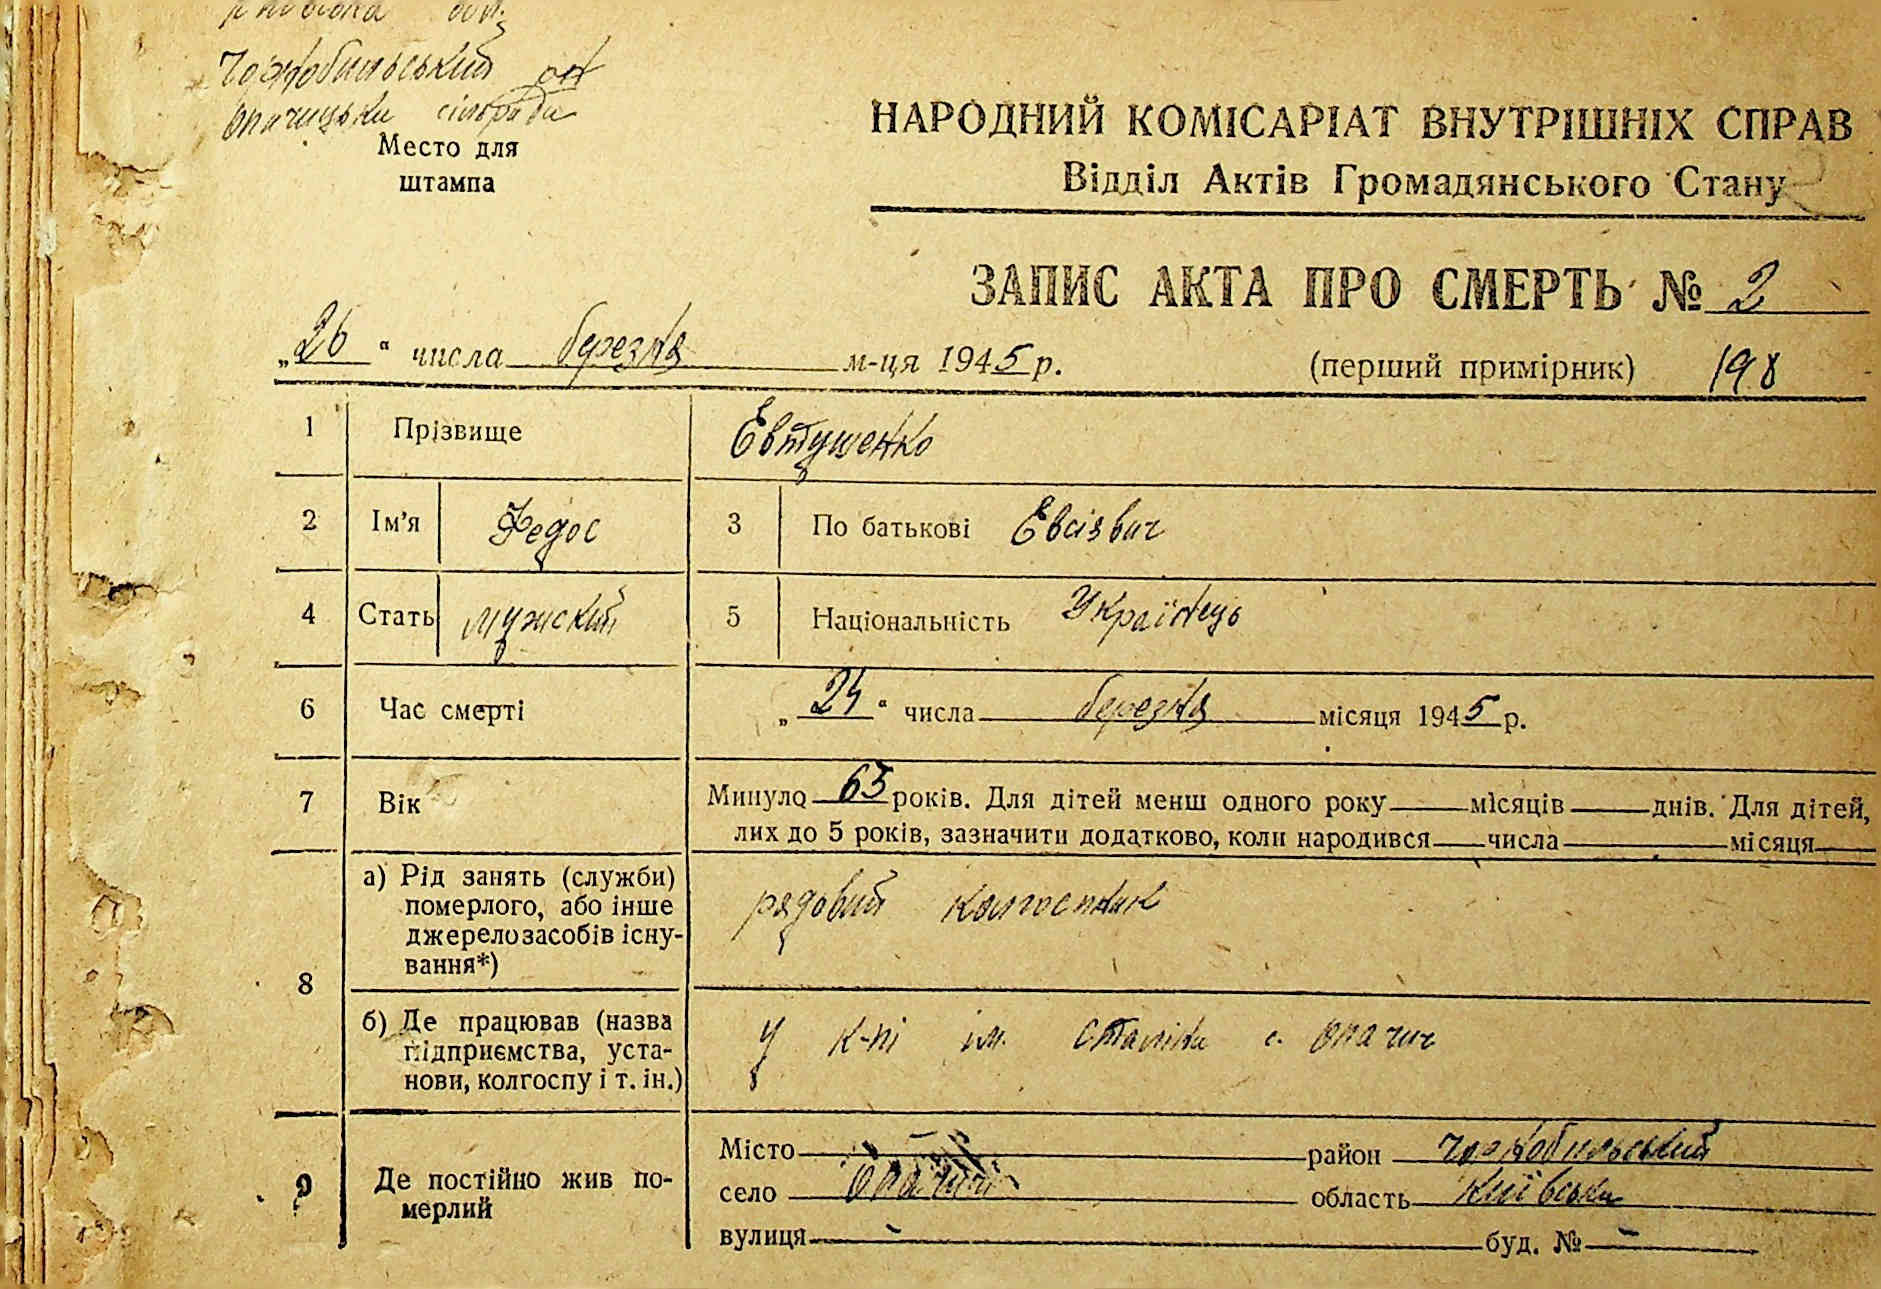 Київська обл.
Чорнобильський р-н
Опачицька сільрада
Место для
штампа
НАРОДНИЙ КОМІСАРІАТ ВНУТРІШНІХ СПРАВ
Відділ Актів Громадянського Стану
ЗАПИС АКТА ПРО СМЕРТЬ № 2
„26“ числа березня м-ця 1945 р. (перший примірник) 198
1 Прізвище Євтушенко
2 Ім'я Федос 3 По батькові Євсієвич
4 Стать мужский 5 Національність Українець
6 Час смерті „24“ числа березня місяця 1945 р.
7 Вік Минуло 63 років. Для дітей менш одного року місяців днів. Для дітей,
лих до 5 років, зазначити додатково, коли народився числа місяця
8 а) Рід занять (служби)
померлого, або інше
джерело засобів існу-
вання*)
рядовий колгоспник
б) Де працював (назва
підприємства, уста-
нови, колгоспу і т. ін.)
у к-пі ім. Сталіна с. Опачич
9 Де постійно жив по-
мерлий
Місто район Чорнобильський
село Опачичі область Київська
вулиця - буд. № -